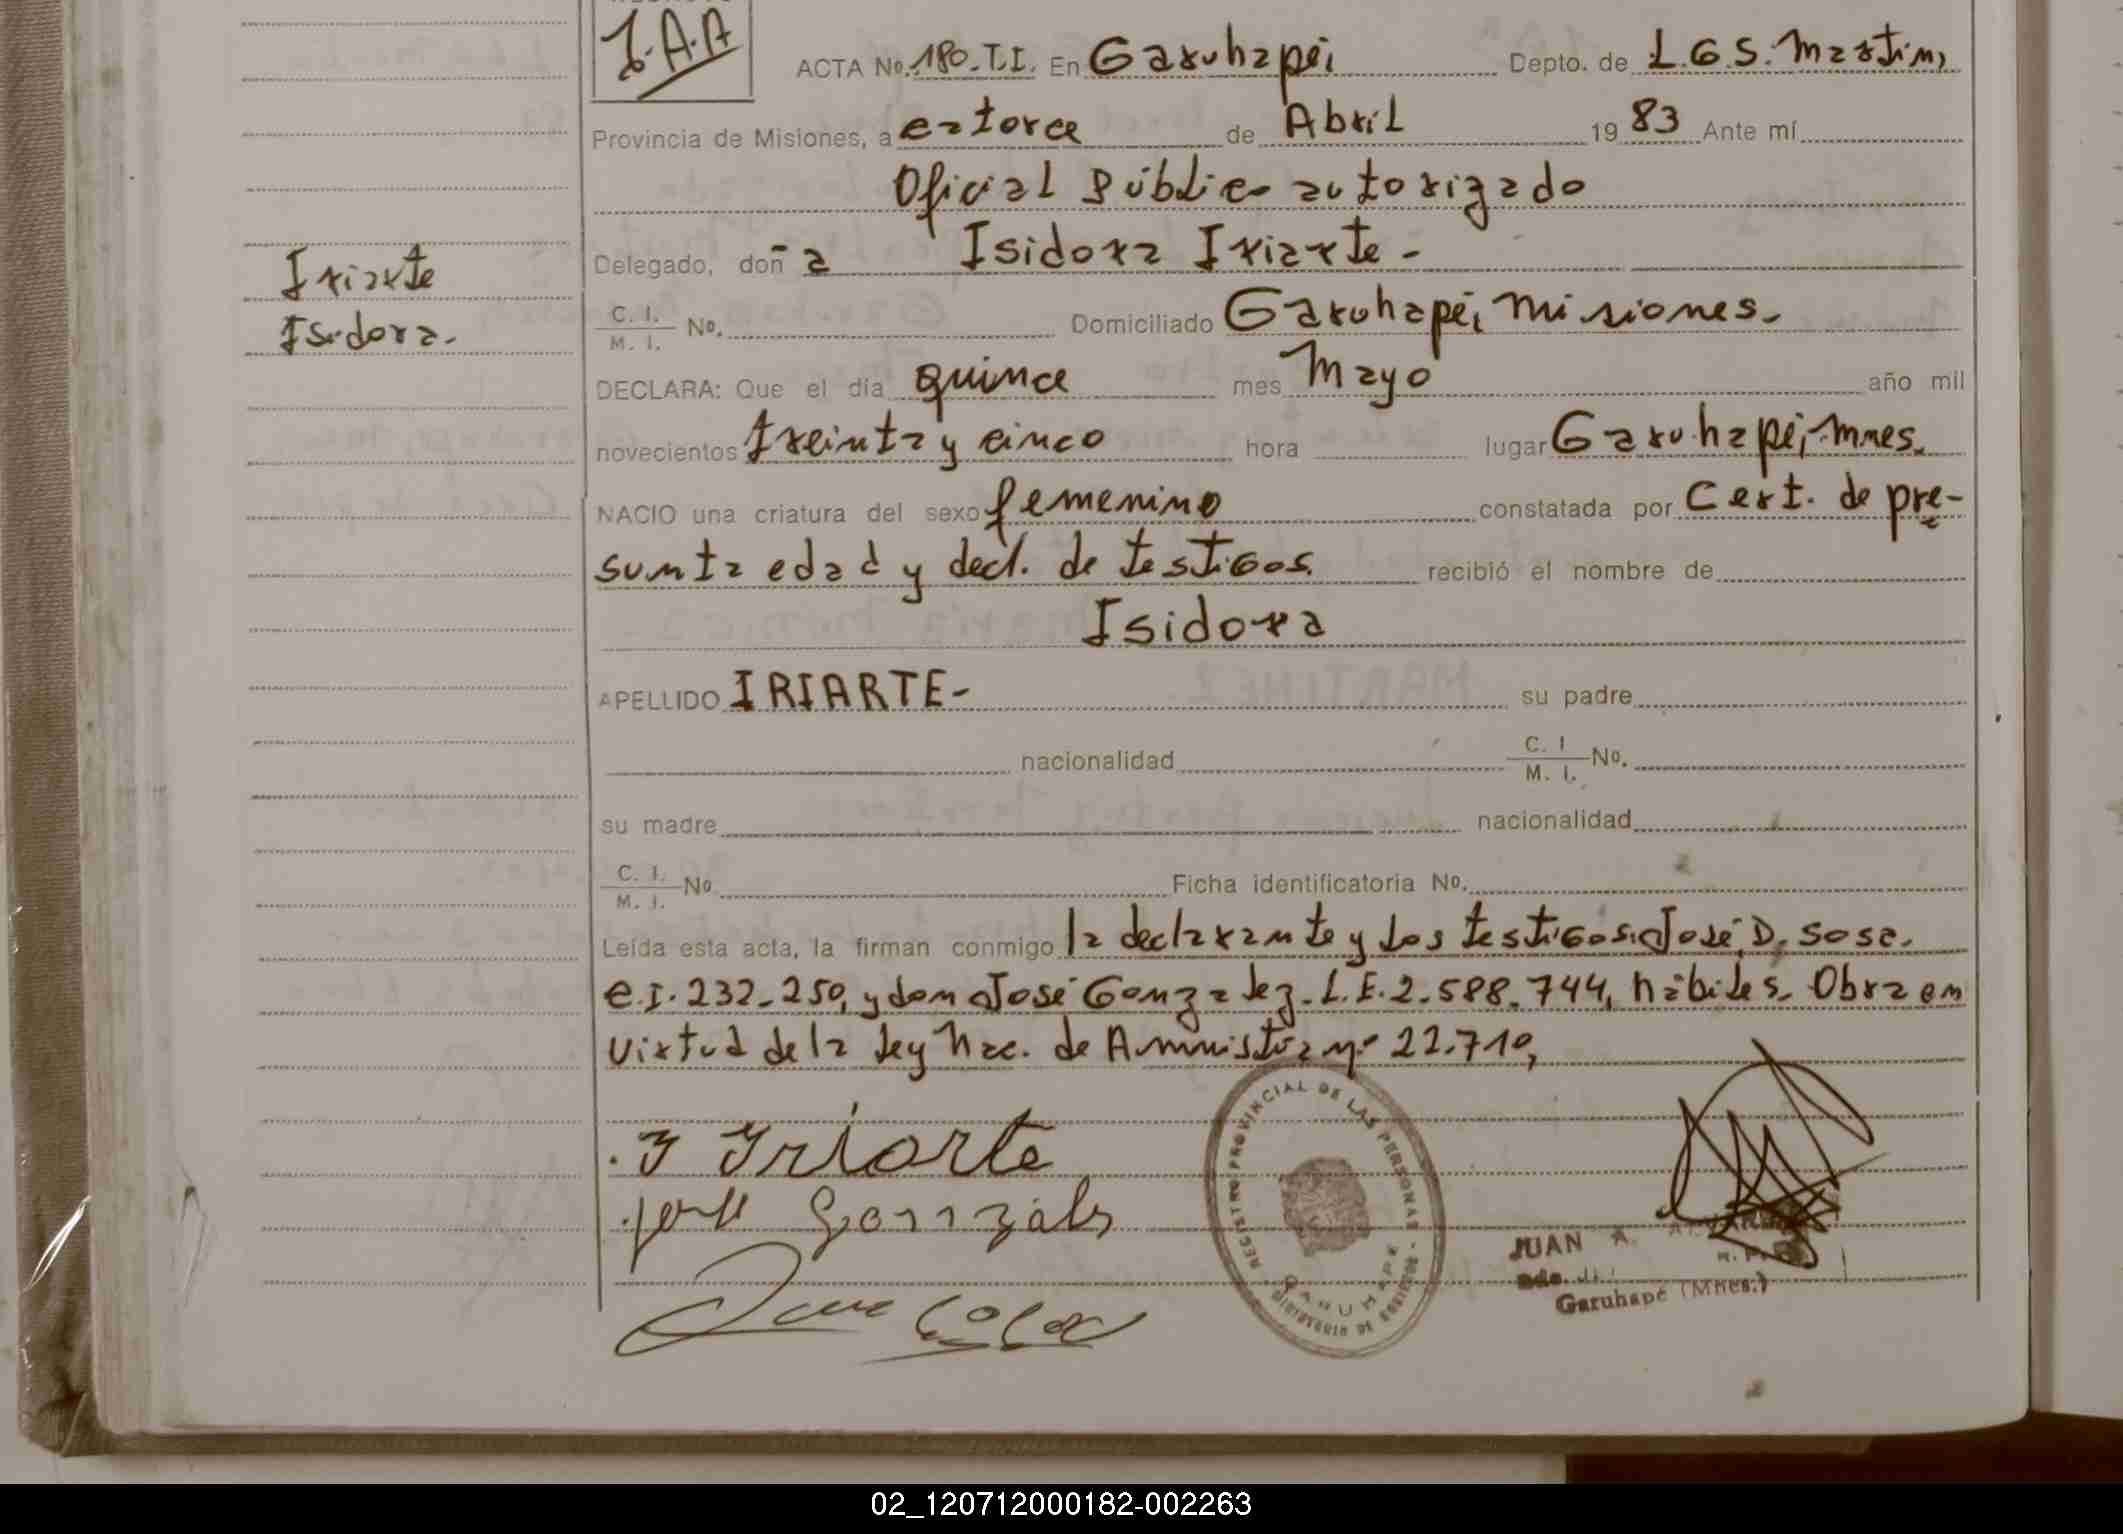 J.A.A
ACTA No. 180.T.I. En Garuhapé, Depto. de L.G.S. Martin,
Provincia de Misiones, a catorce de Abril 19 83 Ante mí
Oficial Público autorizado
Delegado, doña Isidora Iriarte-
Iriarte
Isidora.-
C. I. M. I. No. Domiciliado Garuhapé, Misiones.
DECLARA: Que el día quince mes Mayo año mil
novecientos treinta y cinco hora lugar Garuhapé, Mnes.
NACIO una criatura del sexo femenino constatada por Cert. de pre-
sunta edad y decl. de testigos. recibió el nombre de
Isidora
APELLIDO IRIARTE- su padre
nacionalidad C. I M. I. No.
su madre nacionalidad
C. I. M. I. No Ficha identificatoria No.
Leída esta acta, la firman conmigo la declarante y los testigos: José D. Sosa.
C.I. 232.250, y don José Gonzalez. L.E. 2.588.744, hábiles. Obra en
virtud de la ley Nac. de Amnistía nº 22.710,
I Iriarte
José Gonzáles
REGISTRO PROVINCIAL DE LAS PERSONAS
GARUHAPE
JUAN A.
Garuhapé (Mnes.)
02_120712000182-002263